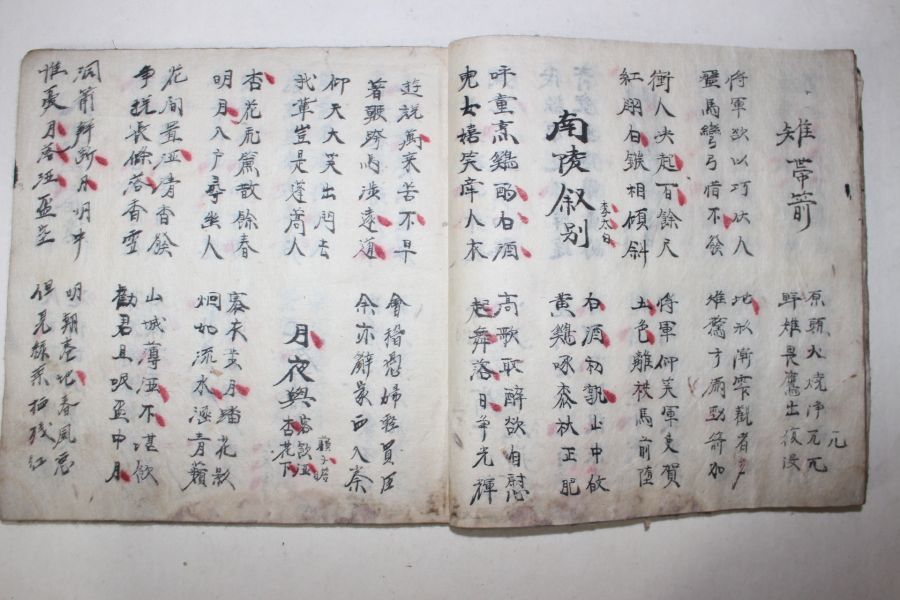 雉帶箭
原頭火燒淨兀兀
野雉畏鷹出復沒
將軍欲以巧伏人
盤馬彎弓惜不發
地形漸窄觀者多
雉驚弓滿勁箭加
衝人決起百餘尺
紅翎白鏃相傾斜
將軍仰笑軍吏賀
五色離披馬前墮
南陵叙別
李太白
白酒初熟山中
黃鷄啄黍秋正肥
呼童烹鷄酌白酒
兒女嬉笑牽人衣
高歌取醉欲自慰
起舞落日爭光輝
遊說萬乘苦不早
著鞭跨馬涉遠道
會稽愚婦輕買臣
余亦辭家西入秦
仰天大笑出門去
我輩豈是蓬蒿人
月夜與客飲酒杏花下
蘇子瞻
杏花飛簾散餘春
明月入戶尋幽人
褰衣步月踏花影
炯如流水涵青蘋
花間置酒清香發
爭挽長條落香雪
山城薄酒不堪飲
勸君且吸盃中月
洞簫聲斷月明中
惟憂月落酒盃空
明朝捲地春風惡
但見綠葉栖殘紅